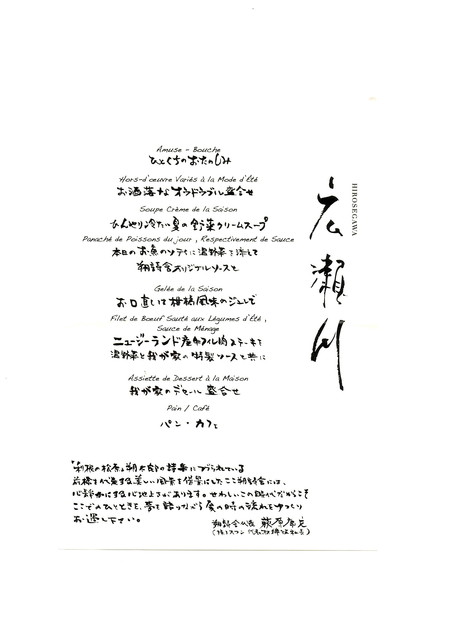 広瀬川
HIROSEGAWA
Amuse – Bouche
ひとくちのおたのしみ
Hors-d'oeuvre Variés à la Mode d'Été
お洒落なオードブル盛合せ
Soupe Crème de la Saison
ひんやり冷たい夏の野菜クリームスープ
Panaché de Poissons du jour , Respectivement de Sauce
本日のお魚のソテーに温野菜を添えて
朔詩舎オリジナルソースと
Gelée de la Saison
お口直しは柑橘風味のジュレで
Filet de Boeuf Sauté aux Légumes d'Été ,
Sauce de Ménage
ニュージーランド産牛フィレ肉ステーキを
温野菜と我が家の特製ソースと共に
Assiette de Dessert à la Maison
我が家のデセール盛合せ
Pain / Café
パン・カフェ
「利根の松原」朔太郎の詩集につづられている
前橋を代表する美しい風景を借景にしたここ朔詩舎には、
心静かにする心地よさがあります。せわしいこの時代だからこそ
ここでのひとときを、夢を語りながら食の時の流れをゆっくり
お過し下さい。
朔詩舎代表 萩原康充